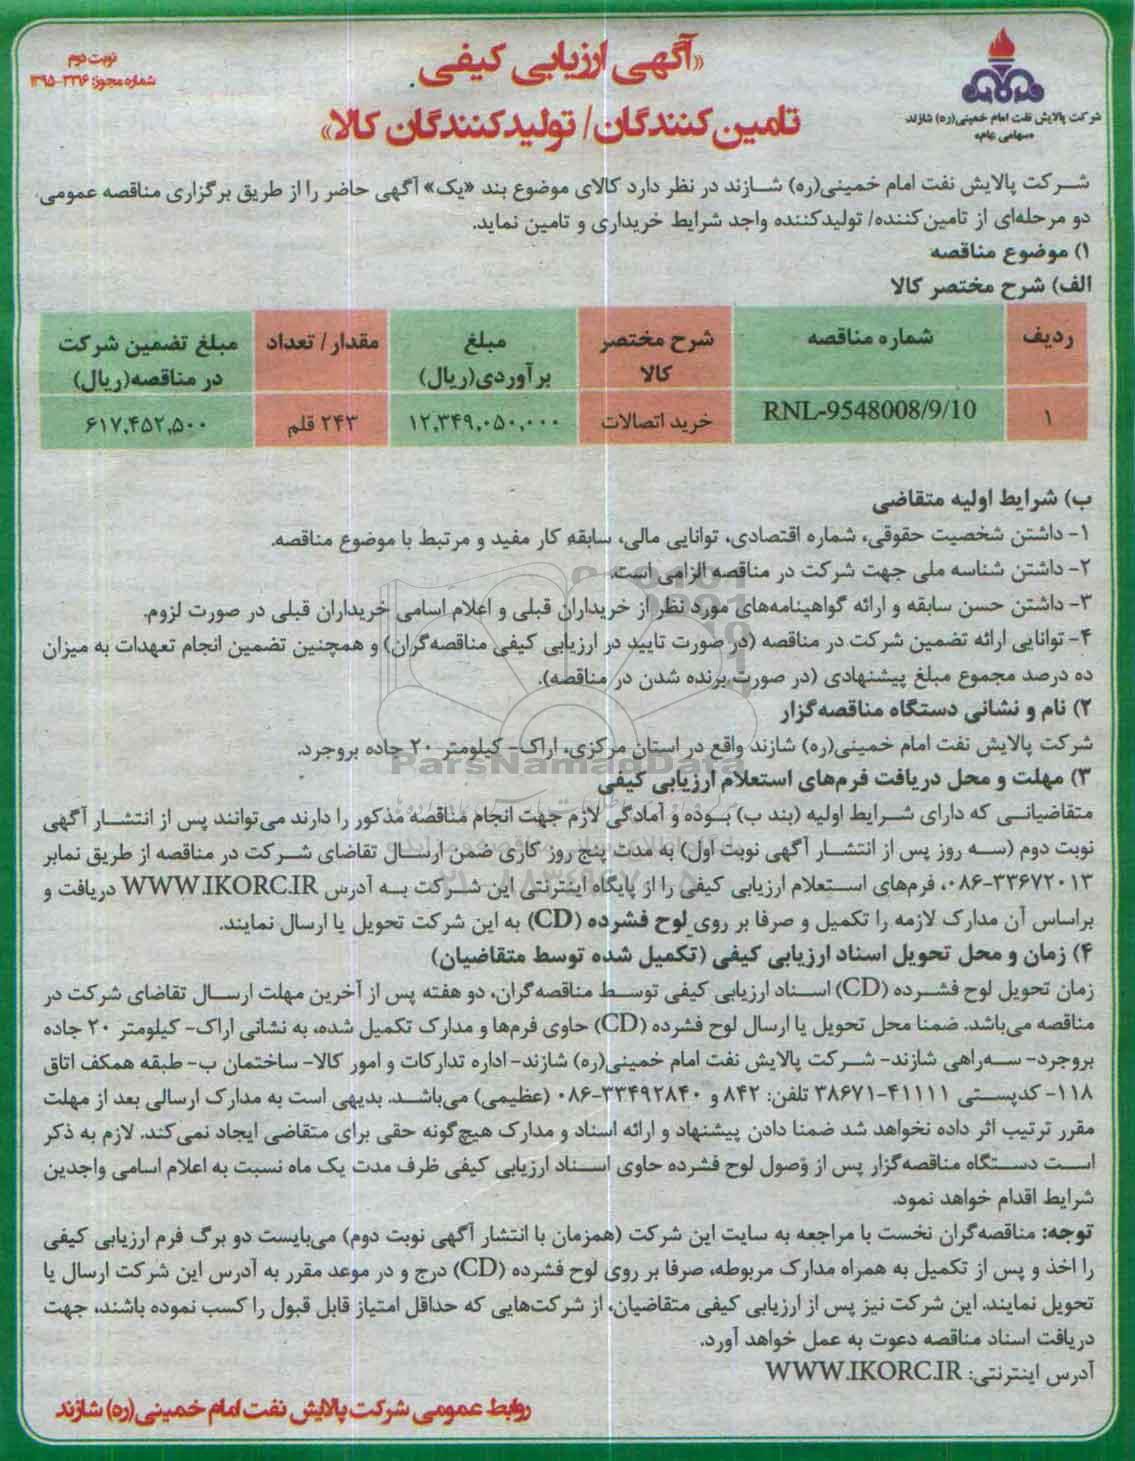 نوبت دوم
شماره مجوز: ۳۳۱۶-۱۳۹۵
«آگهی ارزیابی کیفی
تامین کنندگان/ تولیدکنندگان کالا»
شرکت پالایش نفت امام خمینی(ره) شازند
«سهامی عام»
شرکت پالایش نفت امام خمینی(ره) شازند در نظر دارد کالای موضوع بند «یک» آگهی حاضر را از طریق برگزاری مناقصه عمومی
دو مرحله‌ای از تامین‌کننده/ تولیدکننده واجد شرایط خریداری و تامین نماید.
۱) موضوع مناقصه
الف) شرح مختصر کالا
ردیف شماره مناقصه شرح مختصر کالا مبلغ برآوردی(ریال) مقدار/ تعداد مبلغ تضمین شرکت در مناقصه(ریال)
۱ RNL-9548008/9/10 خرید اتصالات ۱۲,۳۴۹,۰۵۰,۰۰۰ ۲۴۳ قلم ۶۱۷,۴۵۲,۵۰۰
ب) شرایط اولیه متقاضی
۱- داشتن شخصیت حقوقی، شماره اقتصادی، توانایی مالی، سابقه کار مفید و مرتبط با موضوع مناقصه.
۲- داشتن شناسه ملی جهت شرکت در مناقصه الزامی است.
۳- داشتن حسن سابقه و ارائه گواهینامه‌های مورد نظر از خریداران قبلی و اعلام اسامی خریداران قبلی در صورت لزوم.
۴- توانایی ارائه تضمین شرکت در مناقصه (در صورت تایید در ارزیابی کیفی مناقصه‌گران) و همچنین تضمین انجام تعهدات به میزان
ده درصد مجموع مبلغ پیشنهادی (در صورت برنده شدن در مناقصه).
۲) نام و نشانی دستگاه مناقصه‌گزار
شرکت پالایش نفت امام خمینی(ره) شازند واقع در استان مرکزی، اراک- کیلومتر ۲۰ جاده بروجرد.
ParsNamadData
۳) مهلت و محل دریافت فرم‌های استعلام ارزیابی کیفی
متقاضیانی که دارای شرایط اولیه (بند ب) بوده و آمادگی لازم جهت انجام مناقصه مذکور را دارند می‌توانند پس از انتشار آگهی
نوبت دوم (سه روز پس از انتشار آگهی نوبت اول) به مدت پنج روز کاری ضمن ارسال تقاضای شرکت در مناقصه از طریق نمابر
۰۸۶-۳۳۶۷۲۰۱۳، فرم‌های استعلام ارزیابی کیفی را از پایگاه اینترنتی این شرکت به آدرس WWW.IKORC.IR دریافت و
براساس آن مدارک لازمه را تکمیل و صرفا بر روی لوح فشرده (CD) به این شرکت تحویل یا ارسال نمایند.
۴) زمان و محل تحویل اسناد ارزیابی کیفی (تکمیل شده توسط متقاضیان)
زمان تحویل لوح فشرده (CD) اسناد ارزیابی کیفی توسط مناقصه‌گران، دو هفته پس از آخرین مهلت ارسال تقاضای شرکت در
مناقصه می‌باشد. ضمنا محل تحویل یا ارسال لوح فشرده (CD) حاوی فرم‌ها و مدارک تکمیل شده، به نشانی اراک- کیلومتر ۲۰ جاده
بروجرد- سه‌راهی شازند- شرکت پالایش نفت امام خمینی(ره) شازند- اداره تدارکات و امور کالا- ساختمان ب- طبقه همکف اتاق
۱۱۸- کدپستی ۴۱۱۱۱-۳۸۶۷۱ تلفن: ۸۴۲ و ۳۳۴۹۲۸۴۰-۰۸۶ (عظیمی) می‌باشد. بدیهی است به مدارک ارسالی بعد از مهلت
مقرر ترتیب اثر داده نخواهد شد ضمنا دادن پیشنهاد و ارائه اسناد و مدارک هیچ‌گونه حقی برای متقاضی ایجاد نمی‌کند. لازم به ذکر
است دستگاه مناقصه‌گزار پس از وصول لوح فشرده حاوی اسناد ارزیابی کیفی ظرف مدت یک ماه نسبت به اعلام اسامی واجدین
شرایط اقدام خواهد نمود.
توجه: مناقصه‌گران نخست با مراجعه به سایت این شرکت (همزمان با انتشار آگهی نوبت دوم) می‌بایست دو برگ فرم ارزیابی کیفی
را اخذ و پس از تکمیل به همراه مدارک مربوطه، صرفا بر روی لوح فشرده (CD) درج و در موعد مقرر به آدرس این شرکت ارسال یا
تحویل نمایند. این شرکت نیز پس از ارزیابی کیفی متقاضیان، از شرکت‌هایی که حداقل امتیاز قابل قبول را کسب نموده باشند، جهت
دریافت اسناد مناقصه دعوت به عمل خواهد آورد.
آدرس اینترنتی: WWW.IKORC.IR
روابط عمومی شرکت پالایش نفت امام خمینی(ره) شازند